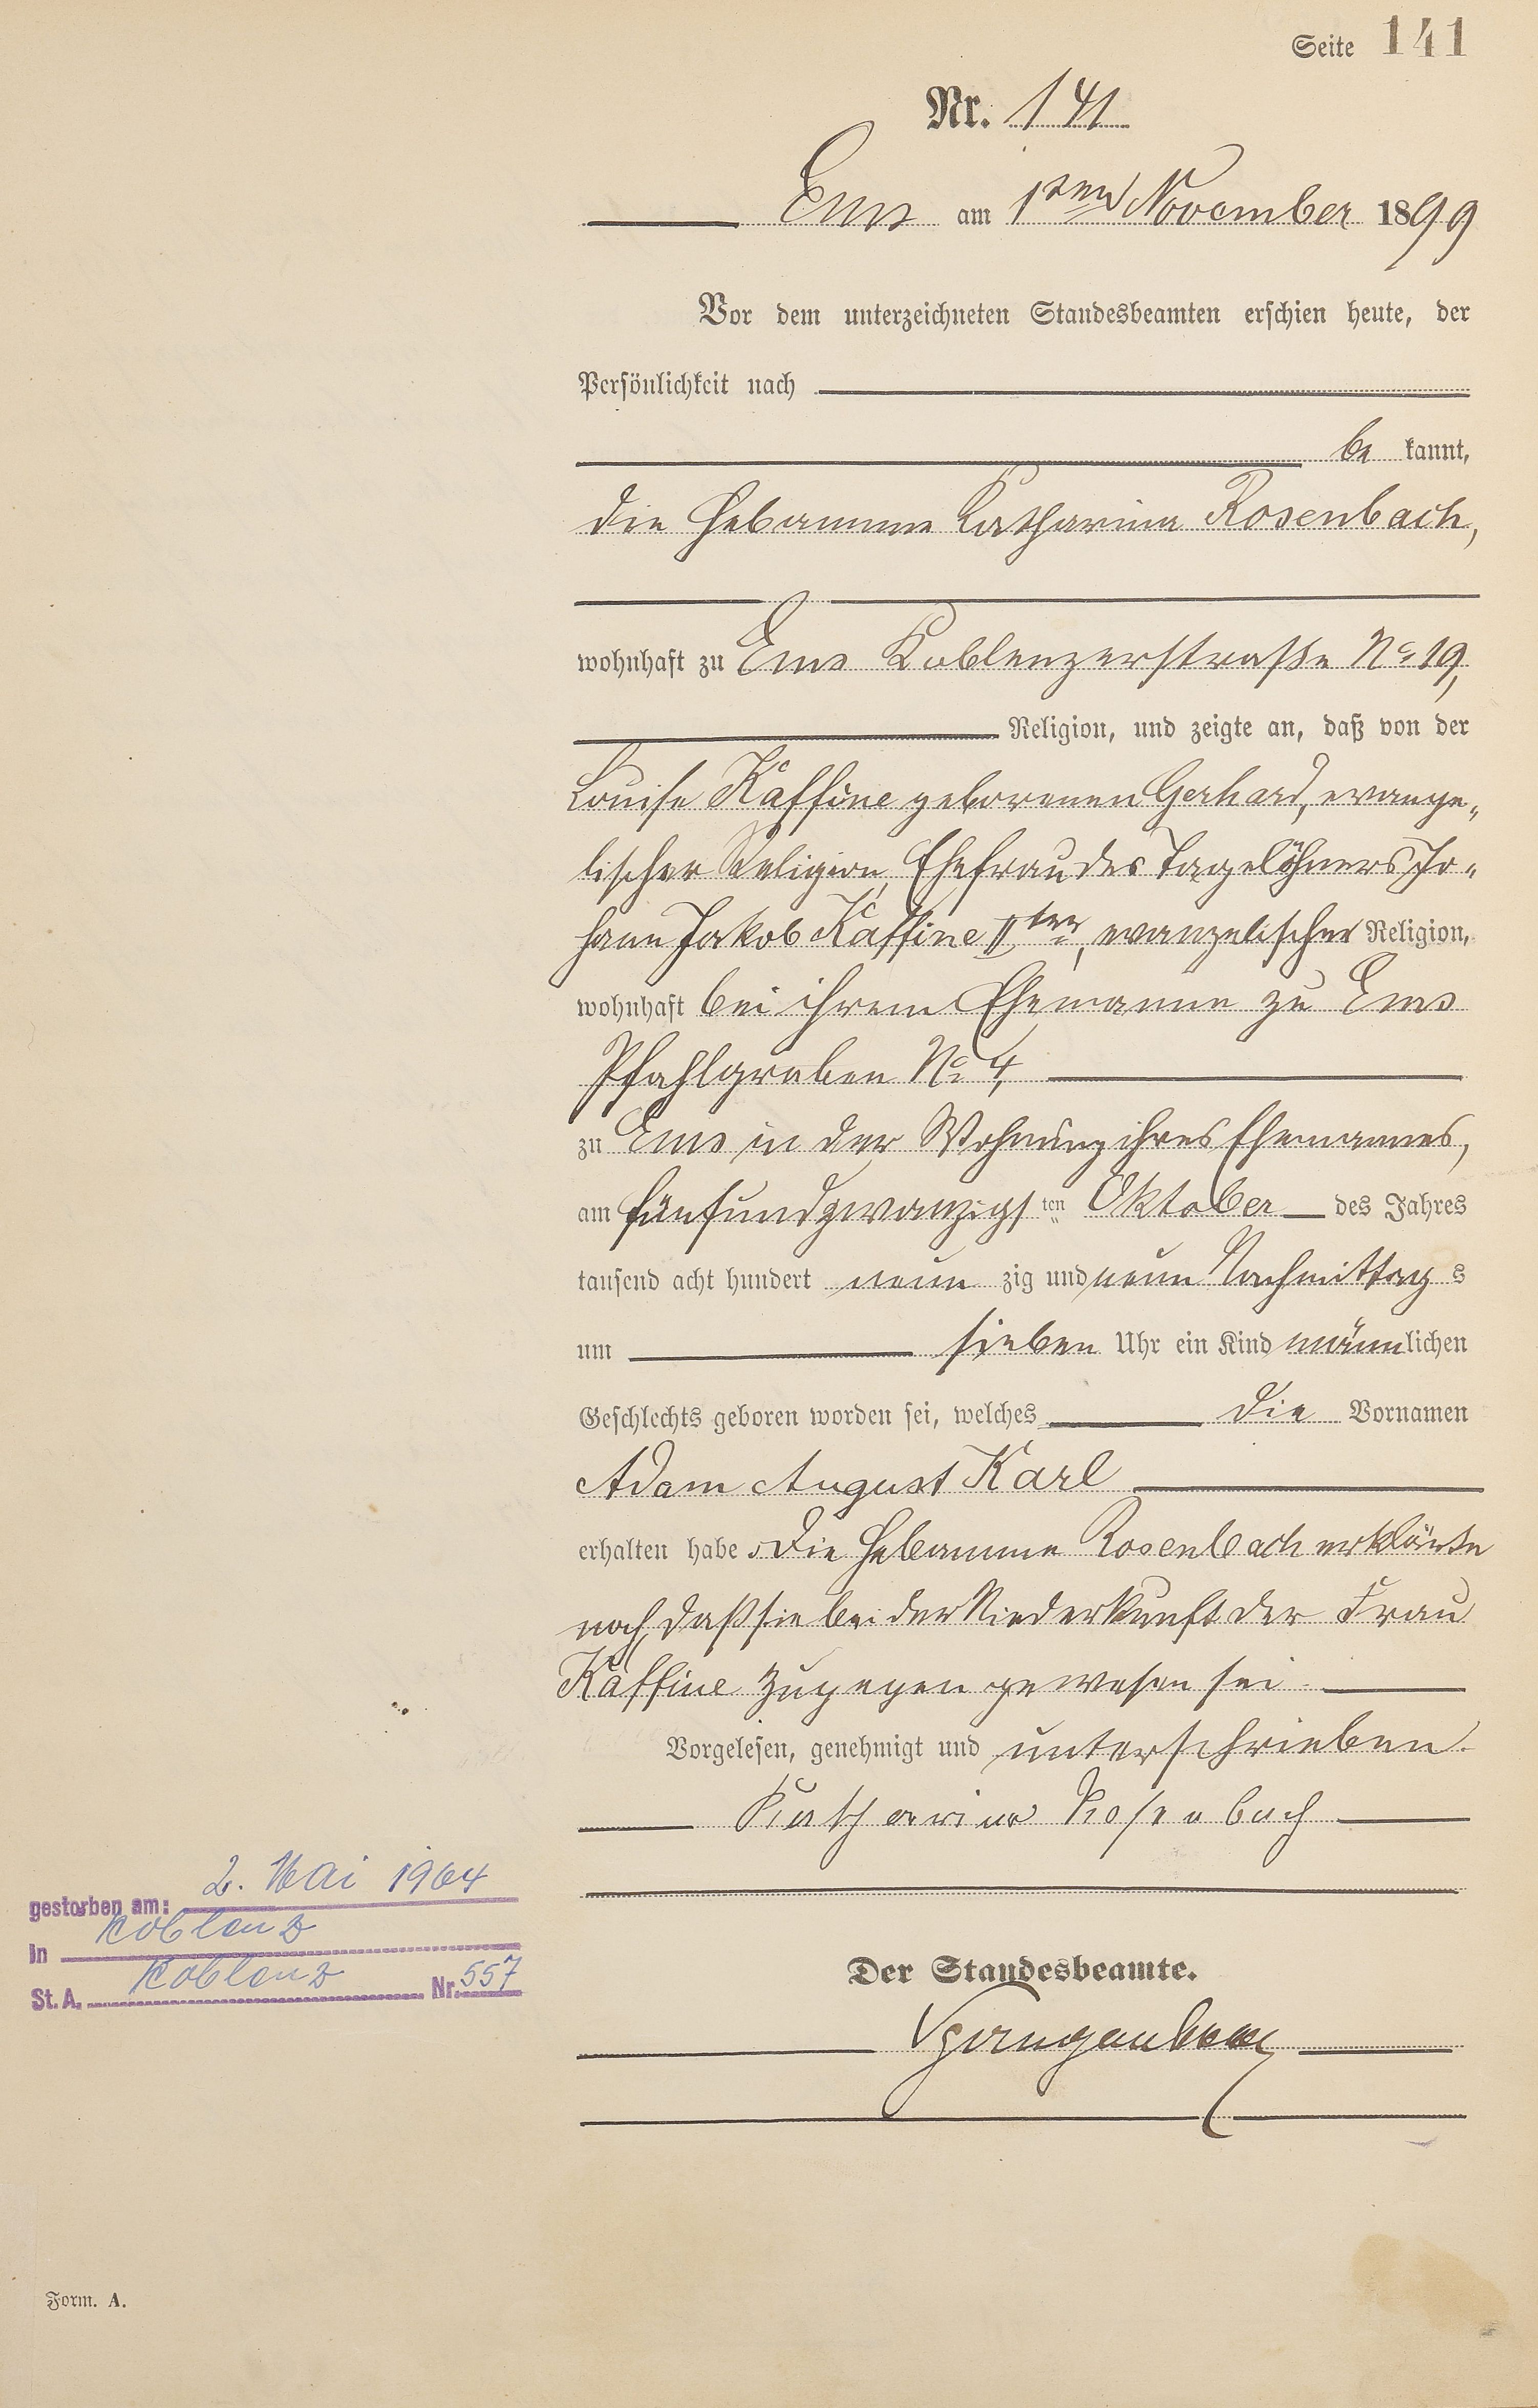 Seite 141
Nr. 141
Ems am 1ten November 1899
Vor dem unterzeichneten Standesbeamten erschien heute, der
Persönlichkeit nach
be kannt,
die Hebamme Katharina Rosenbach,
wohnhaft zu Ems Koblenzerstraße No 19,
Religion, und zeigte an, daß von der
Louise Kaffine geborenen Gerhard, evange-
lischer Religion, Ehefrau des Tagelöhners Jo-
hann Jakob Kaffine IIter, evangelischer Religion,
wohnhaft bei ihrem Ehemanne zu Ems
Pfahlgraben No 4,
zu Ems in der Wohnung ihres Ehemannes,
am fünfundzwanzigsten Oktober des Jahres
tausend acht hundert neun zig und neun Nachmittag s
um sieben Uhr ein Kind männlichen
Geschlechts geboren worden sei, welches die Vornamen
Adam August Karl
erhalten habe. Die Hebamme Rosenbach erklärte
noch, daß sie bei der Niederkunft der Frau
Kaffine zugegen gewesen sei.
Vorgelesen, genehmigt und unterschrieben.
Katharina Rosenbach
gestorben am: 2. Mai 1964
in Koblenz
St. A. Koblenz Nr. 557
Der Standesbeamte.
Form. A.